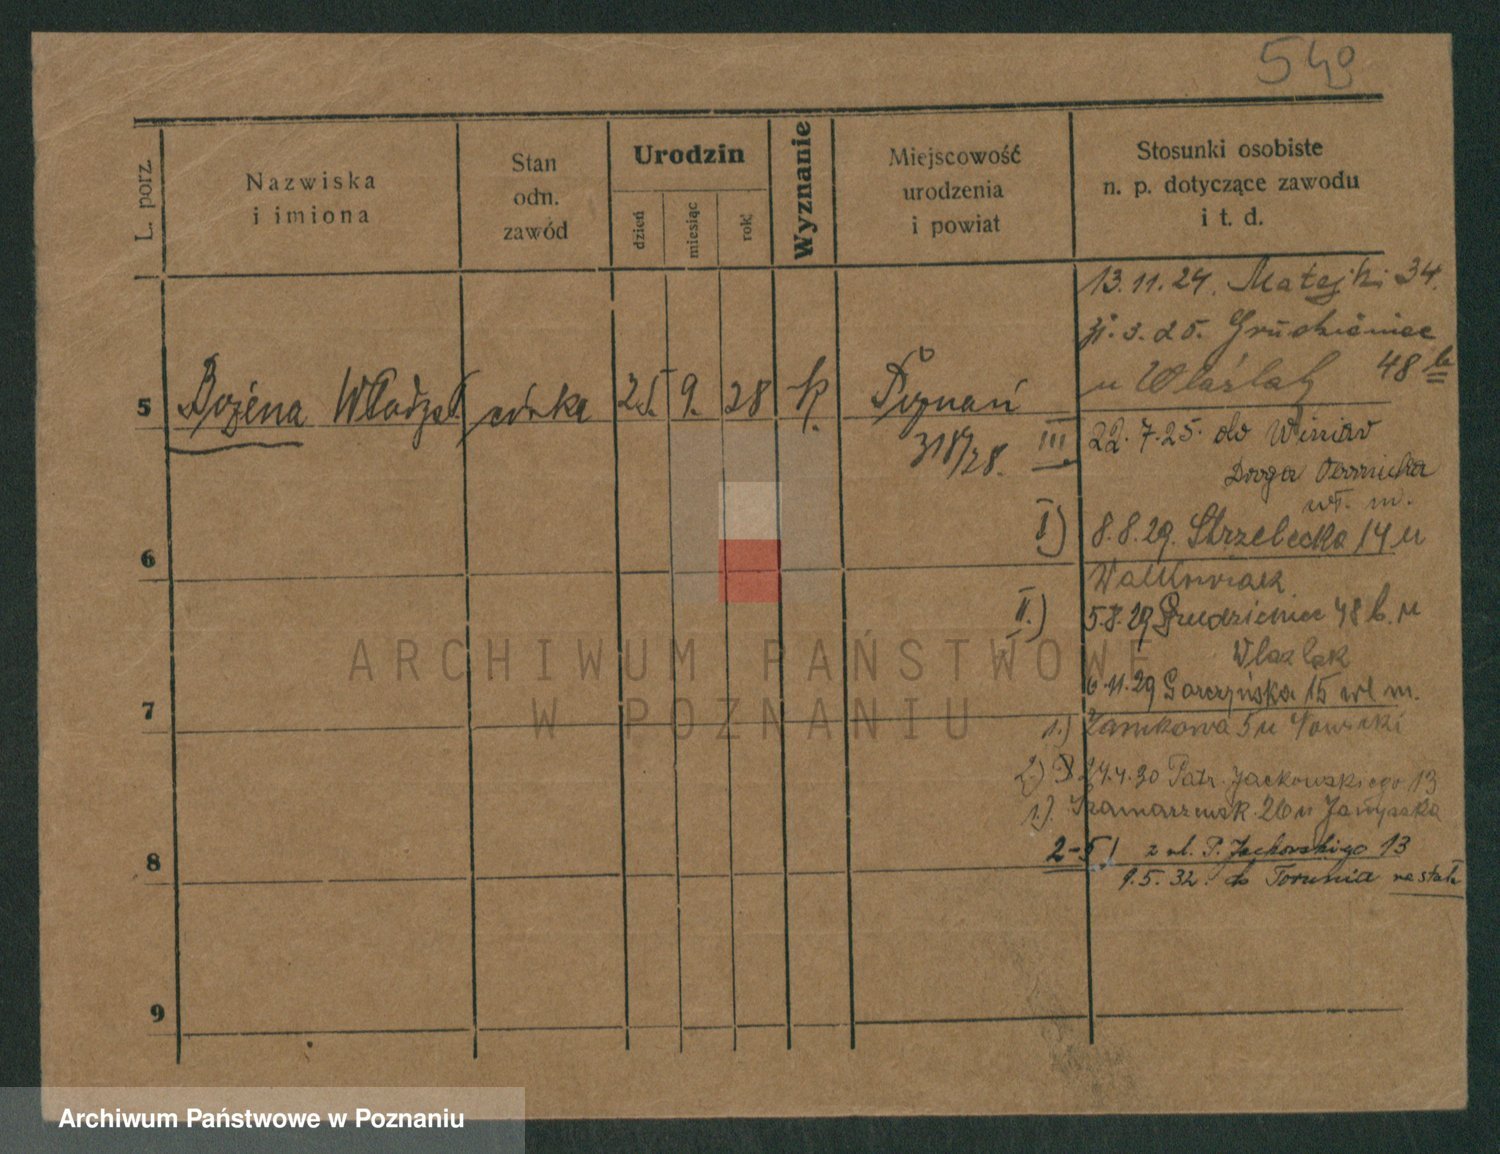 549
L. porz.
Nazwiska
i imiona
Stan
odn.
zawód
Urodzin
dzień
miesiąc
rok
Wyznanie
Miejscowość
urodzenia
i powiat
Stosunki osobiste
n. p. dotyczące zawodu
i t. d.
13.11.24. Matejki 34.
3.25. Grudzieniec
u Wlaźlak 48 b
5 Bożena córka 9. 28 k. Poznań
318/28.
III 22.7.25. do Winiar
Droga
wł. m.
I) 8.8.29. Strzelecka 14 u
6
Walkowiak
II.) 5.8.29 Grudzieniec 48 b. u
Wlazlak
6.11.29 Gorczyńska 15 wł m.
7
1.) Zamkowa 5 u
2.) 24.4.30 Patr. Jackowskiego 13
1.) Szamarzewsk. 26 u
2-5) z ul. P. Jackowskiego 13
8
1.5.32. do Torunia na stałe
9
ARCHIWUM PAŃSTWOWE
W POZNANIU
Archiwum Państwowe w Poznaniu